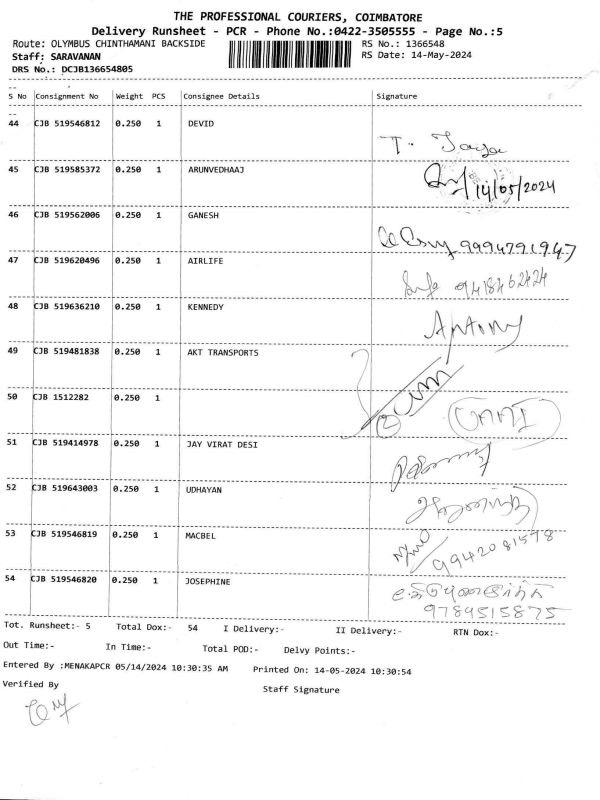 THE PROFESSIONAL COURIERS, COIMBATORE
Delivery Runsheet - PCR - Phone No.:0422-3505555 - Page No.:5
Route: OLYMBUS CHINTHAMANI BACKSIDE RS No.: 1366548
Staff: SARAVANAN RS Date: 14-May-2024
DRS No.: DCJB136654805
S No Consignment No Weight PCS Consignee Details Signature
44 CJB 519546812 0.250 1 DEVID
T. Jaya
45 CJB 519585372 0.250 1 ARUNVEDHAAJ
14/05/2024
46 CJB 519562006 0.250 1 GANESH
9994791947
47 CJB 519620496 0.250 1 AIRLIFE
9418462424
48 CJB 519636210 0.250 1 KENNEDY
Antony
49 CJB 519481838 0.250 1 AKT TRANSPORTS
50 CJB 1512282 0.250 1
51 CJB 519414978 0.250 1 JAY VIRAT DESI
52 CJB 519643003 0.250 1 UDHAYAN
53 CJB 519546819 0.250 1 MACBEL
9942081578
54 CJB 519546820 0.250 1 JOSEPHINE
9789515875
Tot. Runsheet:- 5 Total Dox:- 54 I Delivery:- II Delivery:- RTN Dox:-
Out Time:- In Time:- Total POD:- Delvy Points:-
Entered By :MENAKAPCR 05/14/2024 10:30:35 AM Printed On: 14-05-2024 10:30:54
Verified By Staff Signature